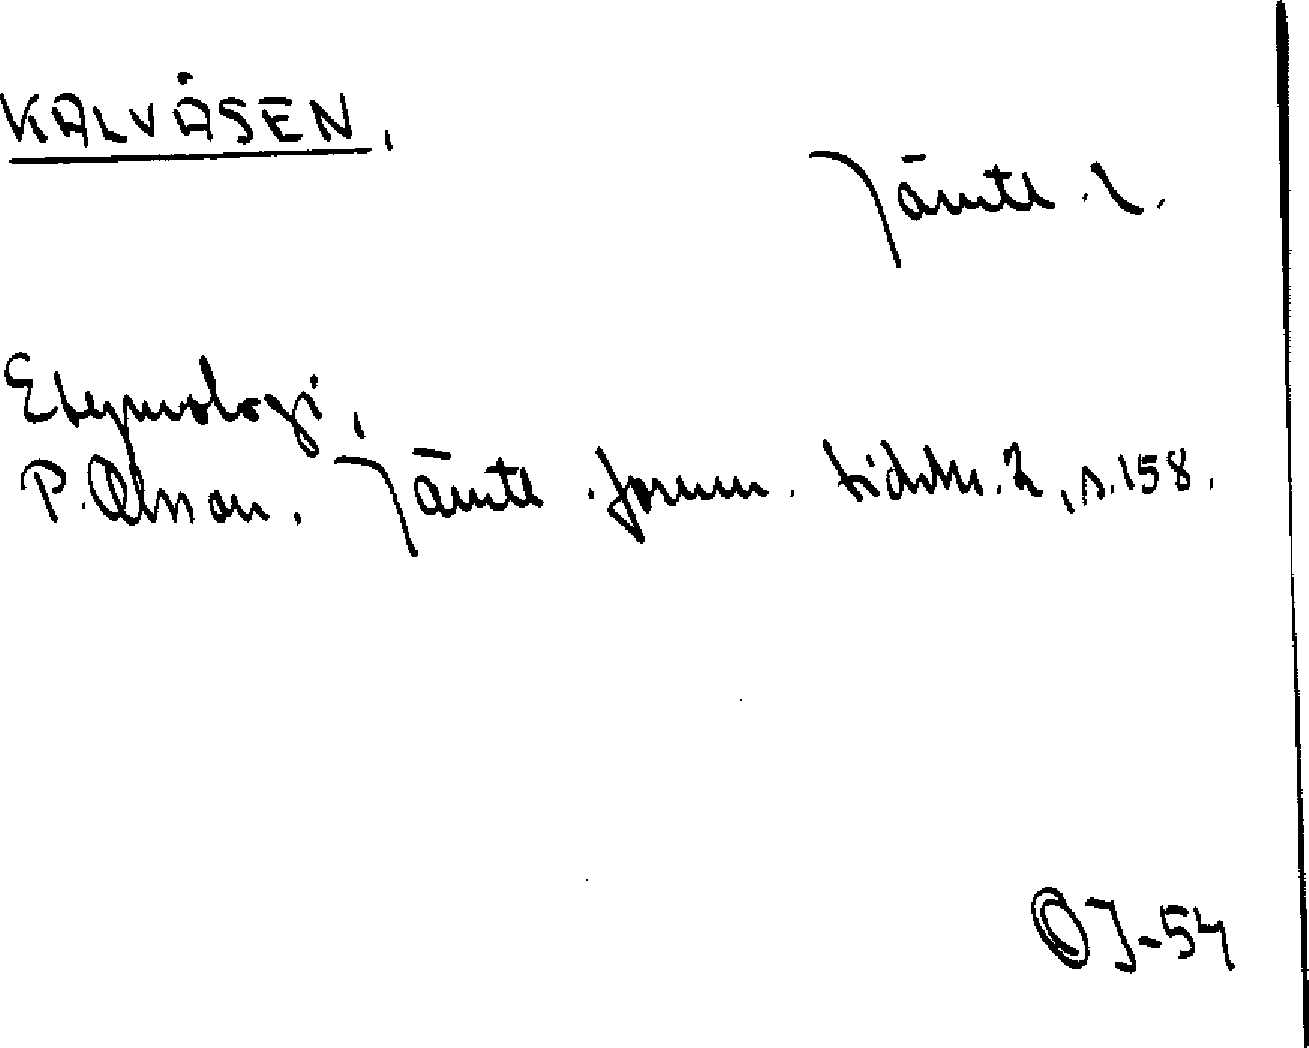 KALVÅSEN.
Jämtl. l.
Etymologi.
P. Olsson. Jämtl. fornm. tidskr. 2, s. 158.
OJ-54